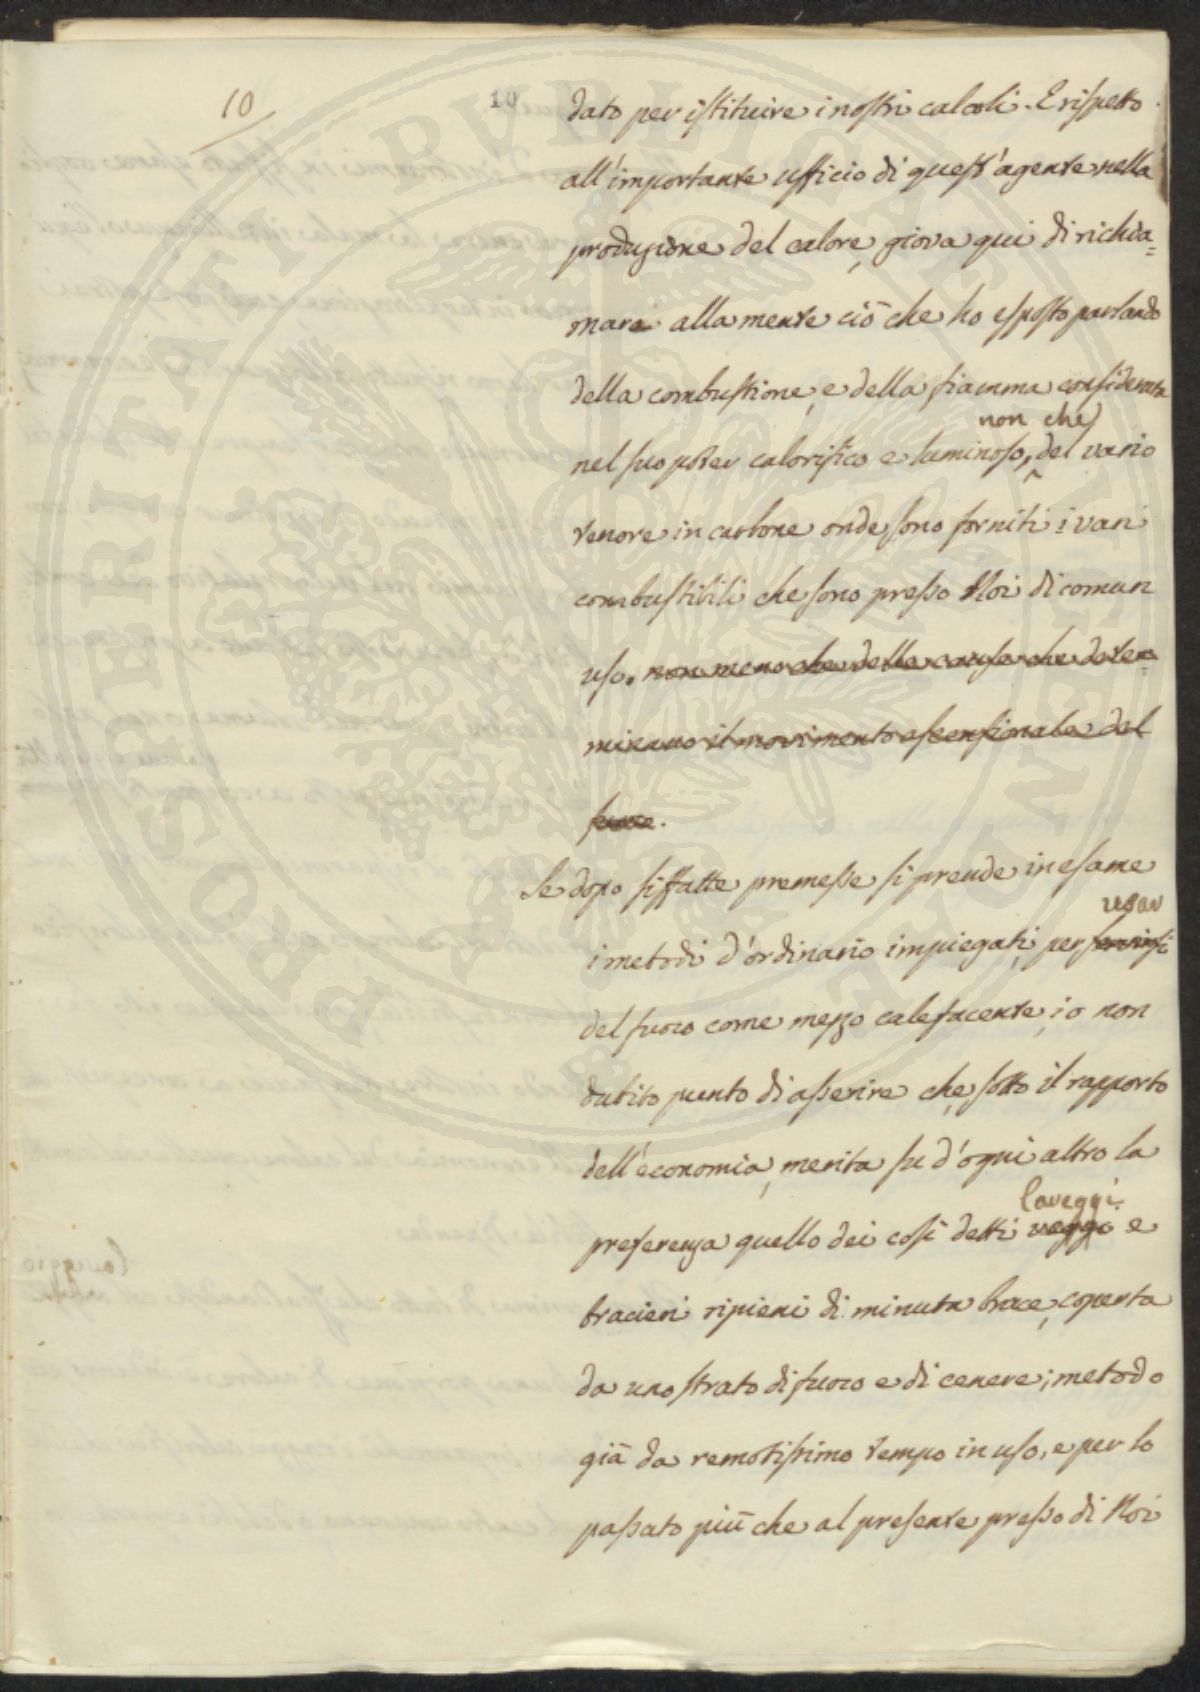 10
10
dato per istituire i nostri calcoli. E rispetto
all'importante ufficio di quest'agente nella
produzione del calore, giova qui di richia=
mare alla mente ciò che ho esposto parlando
della combustione, e della fiamma considerata
non che
nel suo poter calorifico e luminoso, del vario
tenore in carbone onde sono forniti i varî
combustibili che sono presso Noi di comun
uso. non meno che delle cause che deter=
minano il movimento ascensionale del
fumo.
Se dopo siffatte premesse si prende in esame
usar
i metodi d'ordinario impiegati, per servirsi
del fuoco come mezzo calefacente, io non
dubito punto di asserire che, sotto il rapporto
dell'economia, merita su d'ogni altro la
laveggi
preferenza quello dei così detti veggi e
bracieri ripieni di minuta brace, coperta
da uno strato di fuoco e di cenere; metodo
già da remotissimo tempo in uso, e per lo
passato più che al presente presso di Noi
PROSPERITATI PVBLICAE AVGENDAE